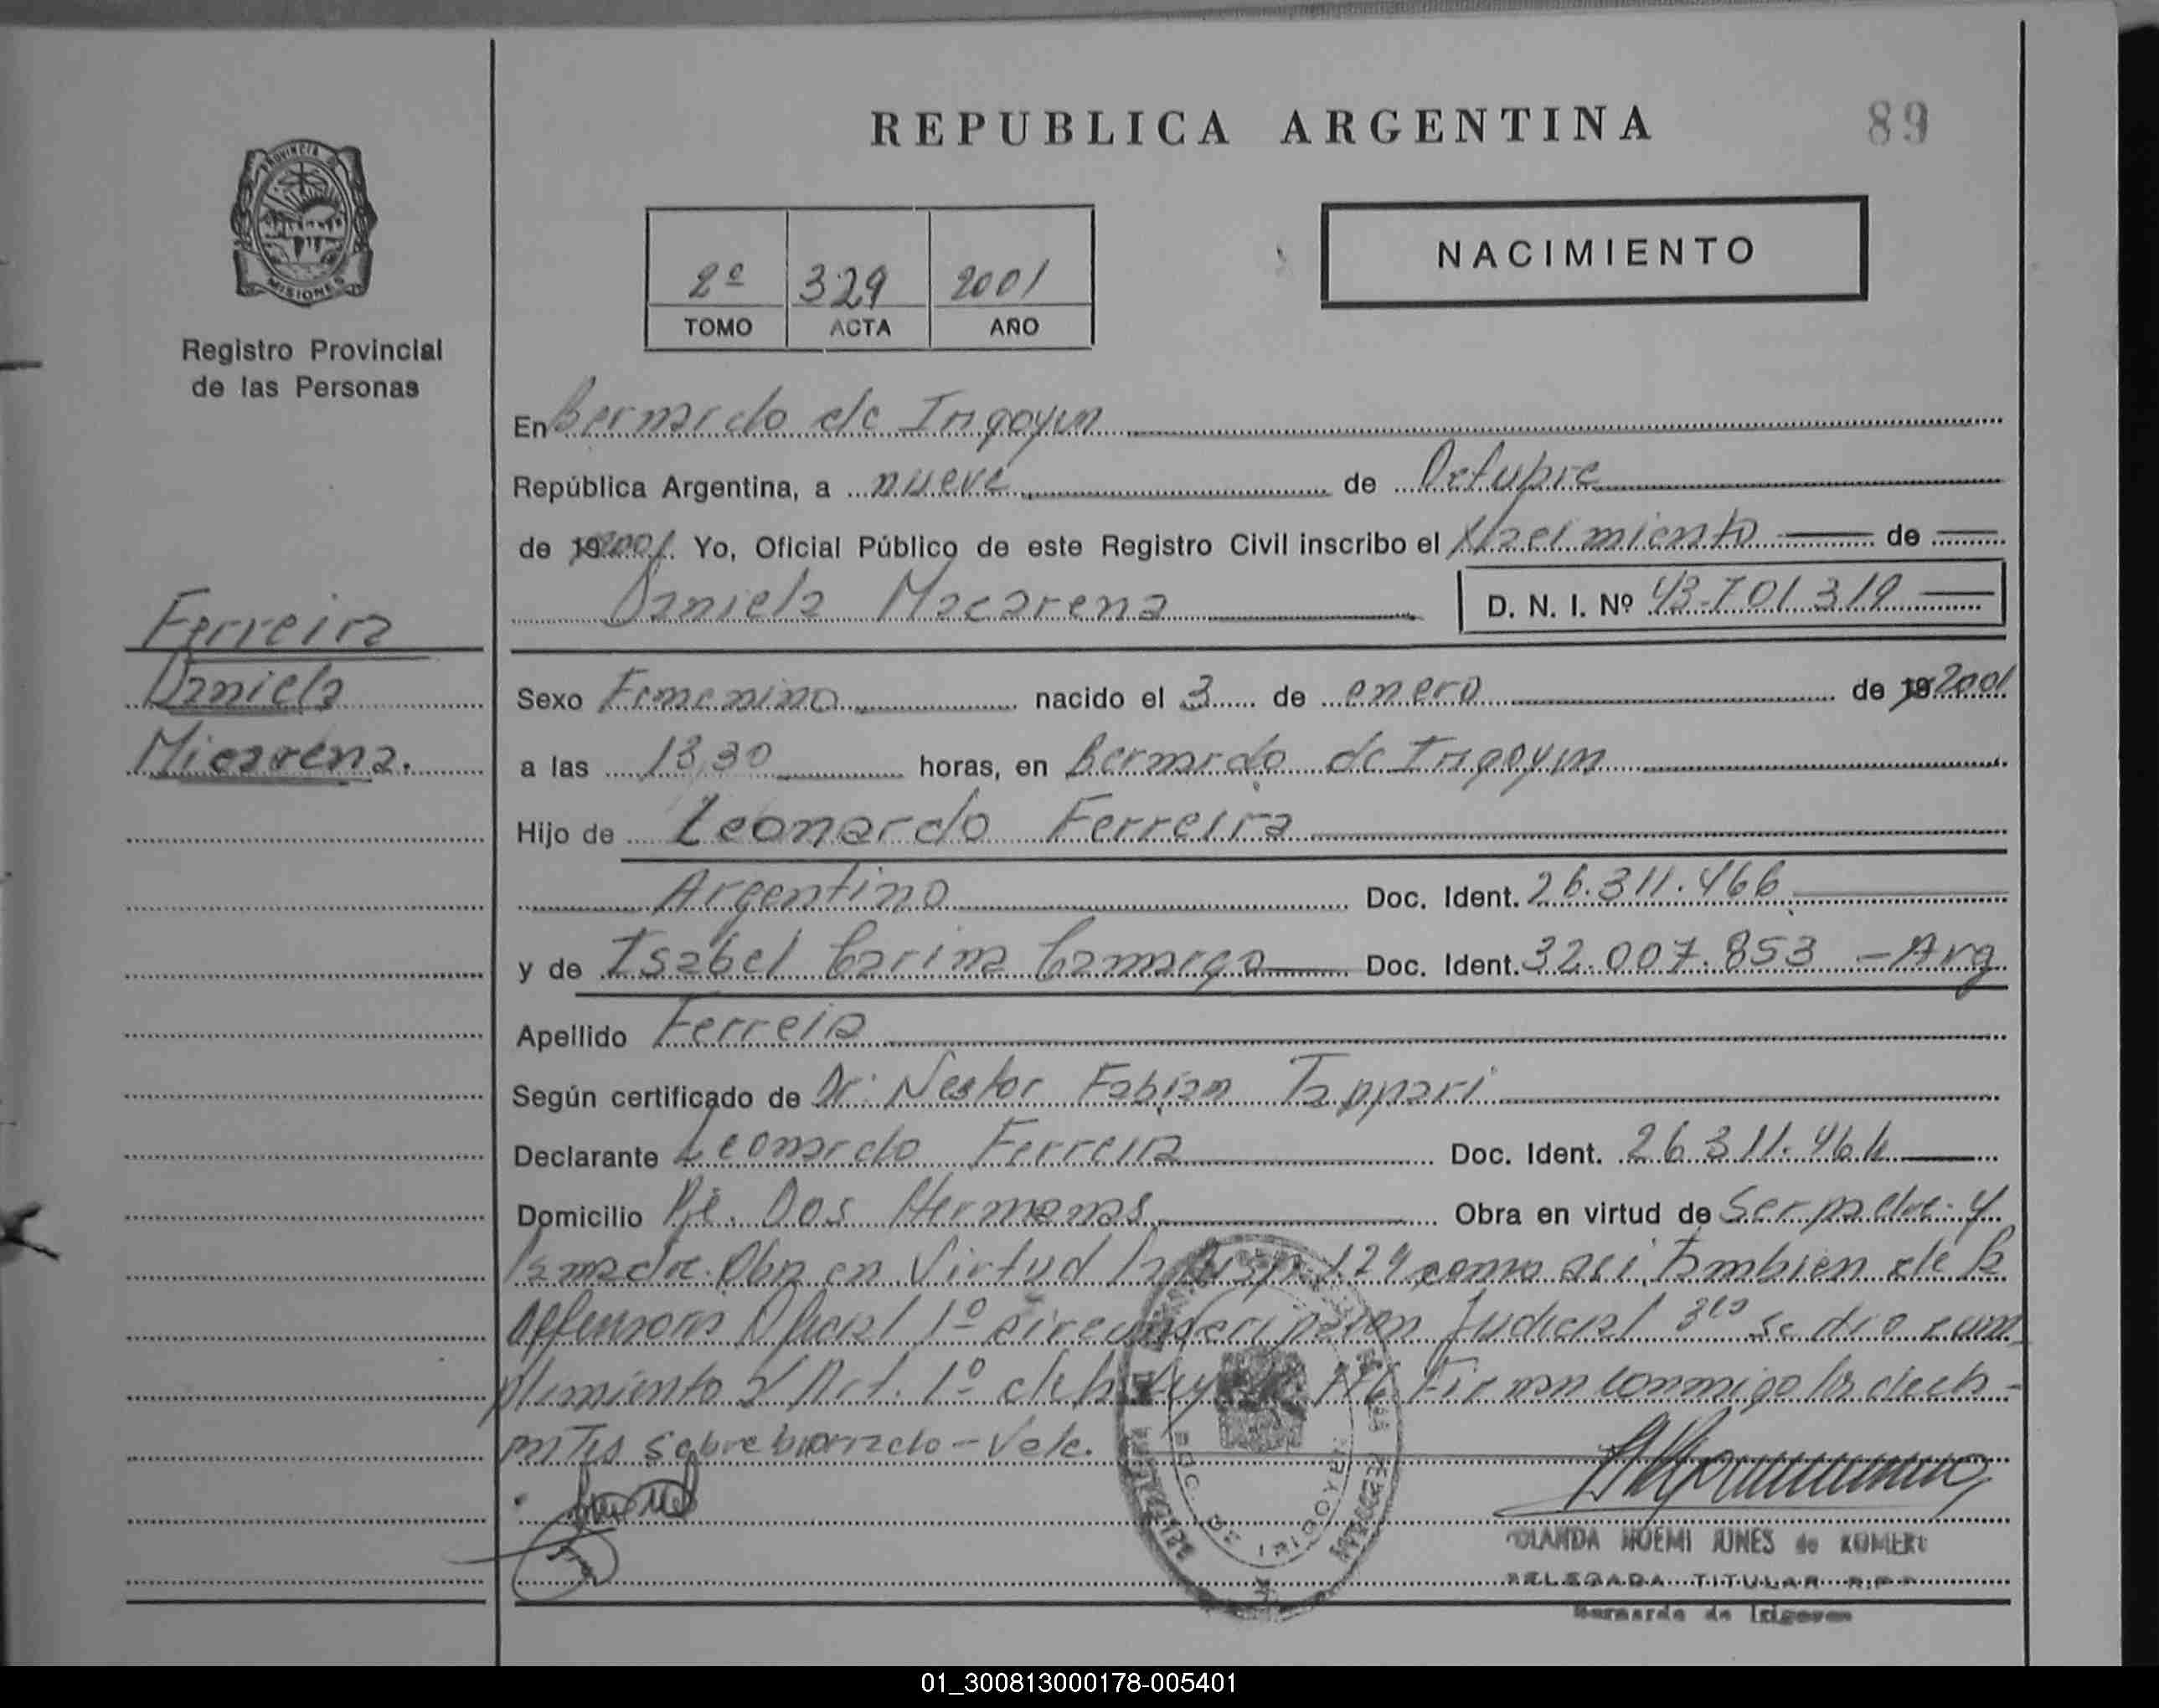 REPUBLICA ARGENTINA
89
PROVINCIA DE
MISIONES
Registro Provincial
de las Personas
2º 329 2001
TOMO ACTA AÑO
NACIMIENTO
En Bernardo de Irigoyen
República Argentina, a nueve de Octubre
de 19 2001. Yo, Oficial Público de este Registro Civil inscribo el Nacimiento de
Daniela Macarena D. N. I. Nº 43.701.319
Ferreira
Daniela
Micarena.
Sexo Femenino nacido el 3 de enero de 19 2001
a las 13,30 horas, en Bernardo de Irigoyen
Hijo de Leonardo Ferreira
Argentino Doc. Ident. 26.311.466
y de Isabel Carina Camargo Doc. Ident. 32.007.853 - Arg
Apellido Ferreira
Según certificado de Dr. Nestor Fabian Tappari
Declarante Leonardo Ferreira Doc. Ident. 26.311.466
Domicilio Pje. Dos Hermanas Obra en virtud de Ser padre y
la madre. Obra en Virtud la 129 como asi, tambien de la
Oficial 1º circunscripcion Judicial se dio cum
plimiento al Art. 1º de la Ley Firman conmigo los decla-
rantes sobreborrado - Vale.
BDO. DE IRIGOYEN
YOLANDA NOEMI JUNES de ROMERO
DELEGADA TITULAR R.P.P.
Bernardo de Irigoyen
01_300813000178-005401